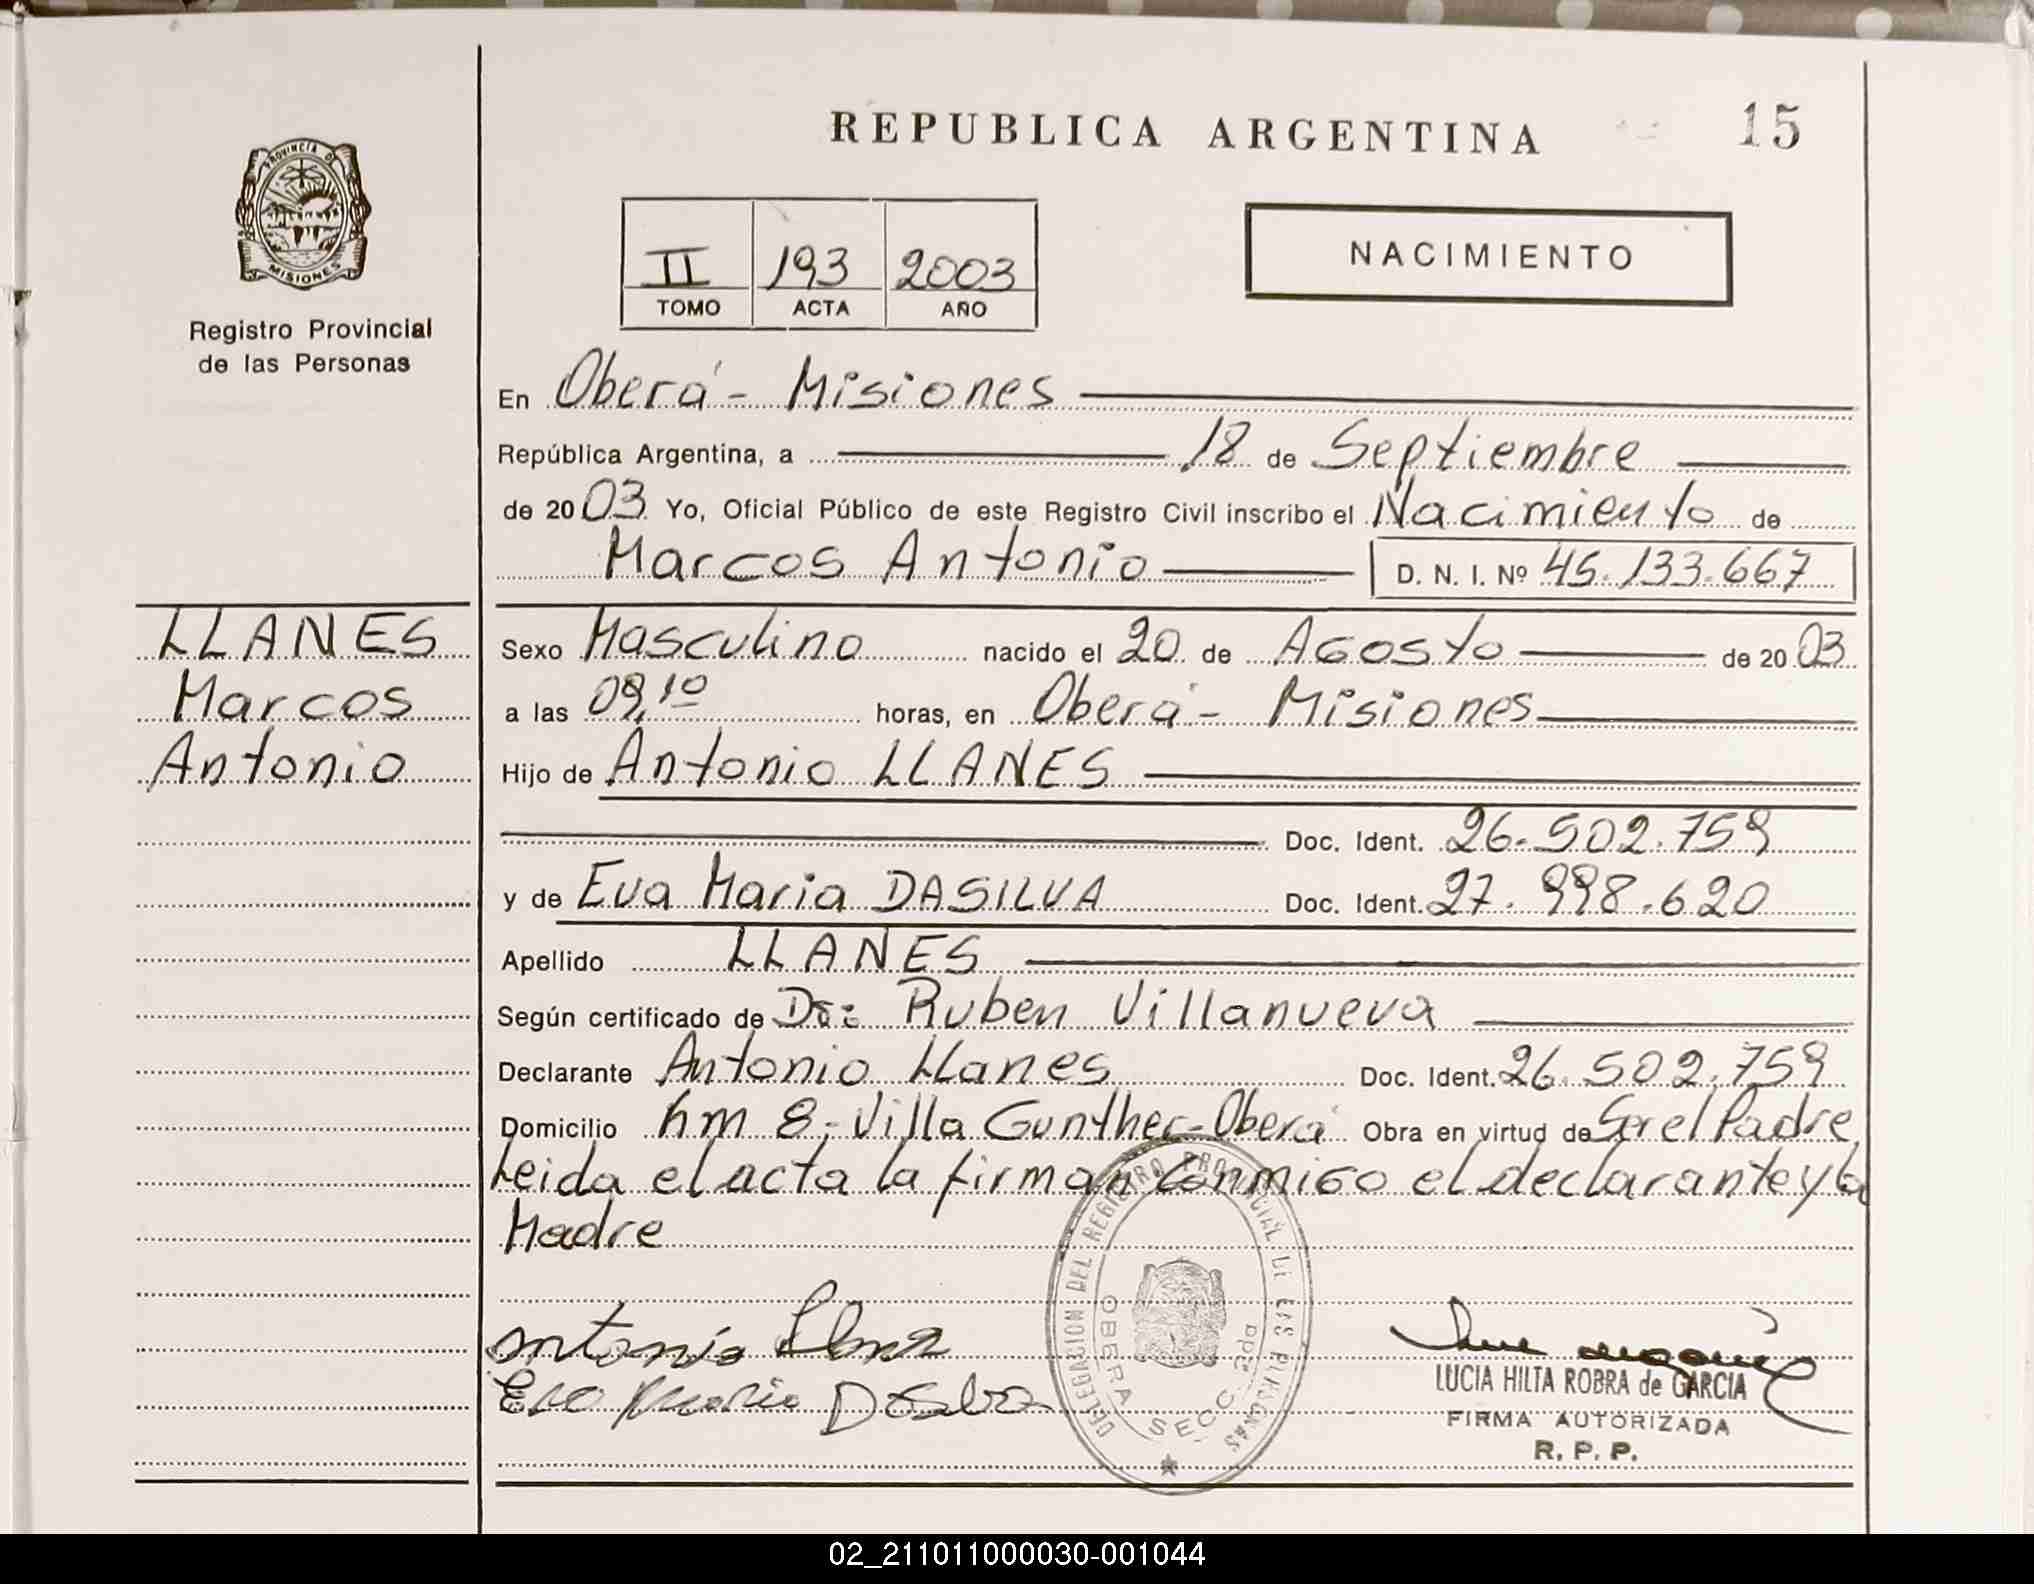 REPUBLICA ARGENTINA
15
PROVINCIA DE
MISIONES
Registro Provincial
de las Personas
II 193 2003
TOMO ACTA AÑO
NACIMIENTO
En Oberá - Misiones
República Argentina, a 18 de Septiembre
de 2003 Yo, Oficial Público de este Registro Civil inscribo el Nacimiento de
Marcos Antonio D. N. I. Nº 45.133.667
LLANES
Marcos
Antonio
Sexo Masculino nacido el 20 de Agosto de 2003
a las 09,10 horas, en Oberá - Misiones
Hijo de Antonio LLANES
Doc. Ident. 26.502.759
y de Eva Maria DASILVA Doc. Ident. 27.998.620
Apellido LLANES
Según certificado de Dr: Ruben Villanueva
Declarante Antonio Llanes Doc. Ident. 26.502.759
Domicilio Km 8,- Villa Gunther - Oberá Obra en virtud de Ser el Padre
Leida el acta la firman conmigo el declarante y la
Madre
Antonio
Eva Maria Dasilva
DELEGACION DEL REGISTRO PROVINCIAL DE LAS PERSONAS
OBERA SECC. 2da
LUCIA HILTA ROBRA de GARCIA
FIRMA AUTORIZADA
R. P. P.
02_211011000030-001044